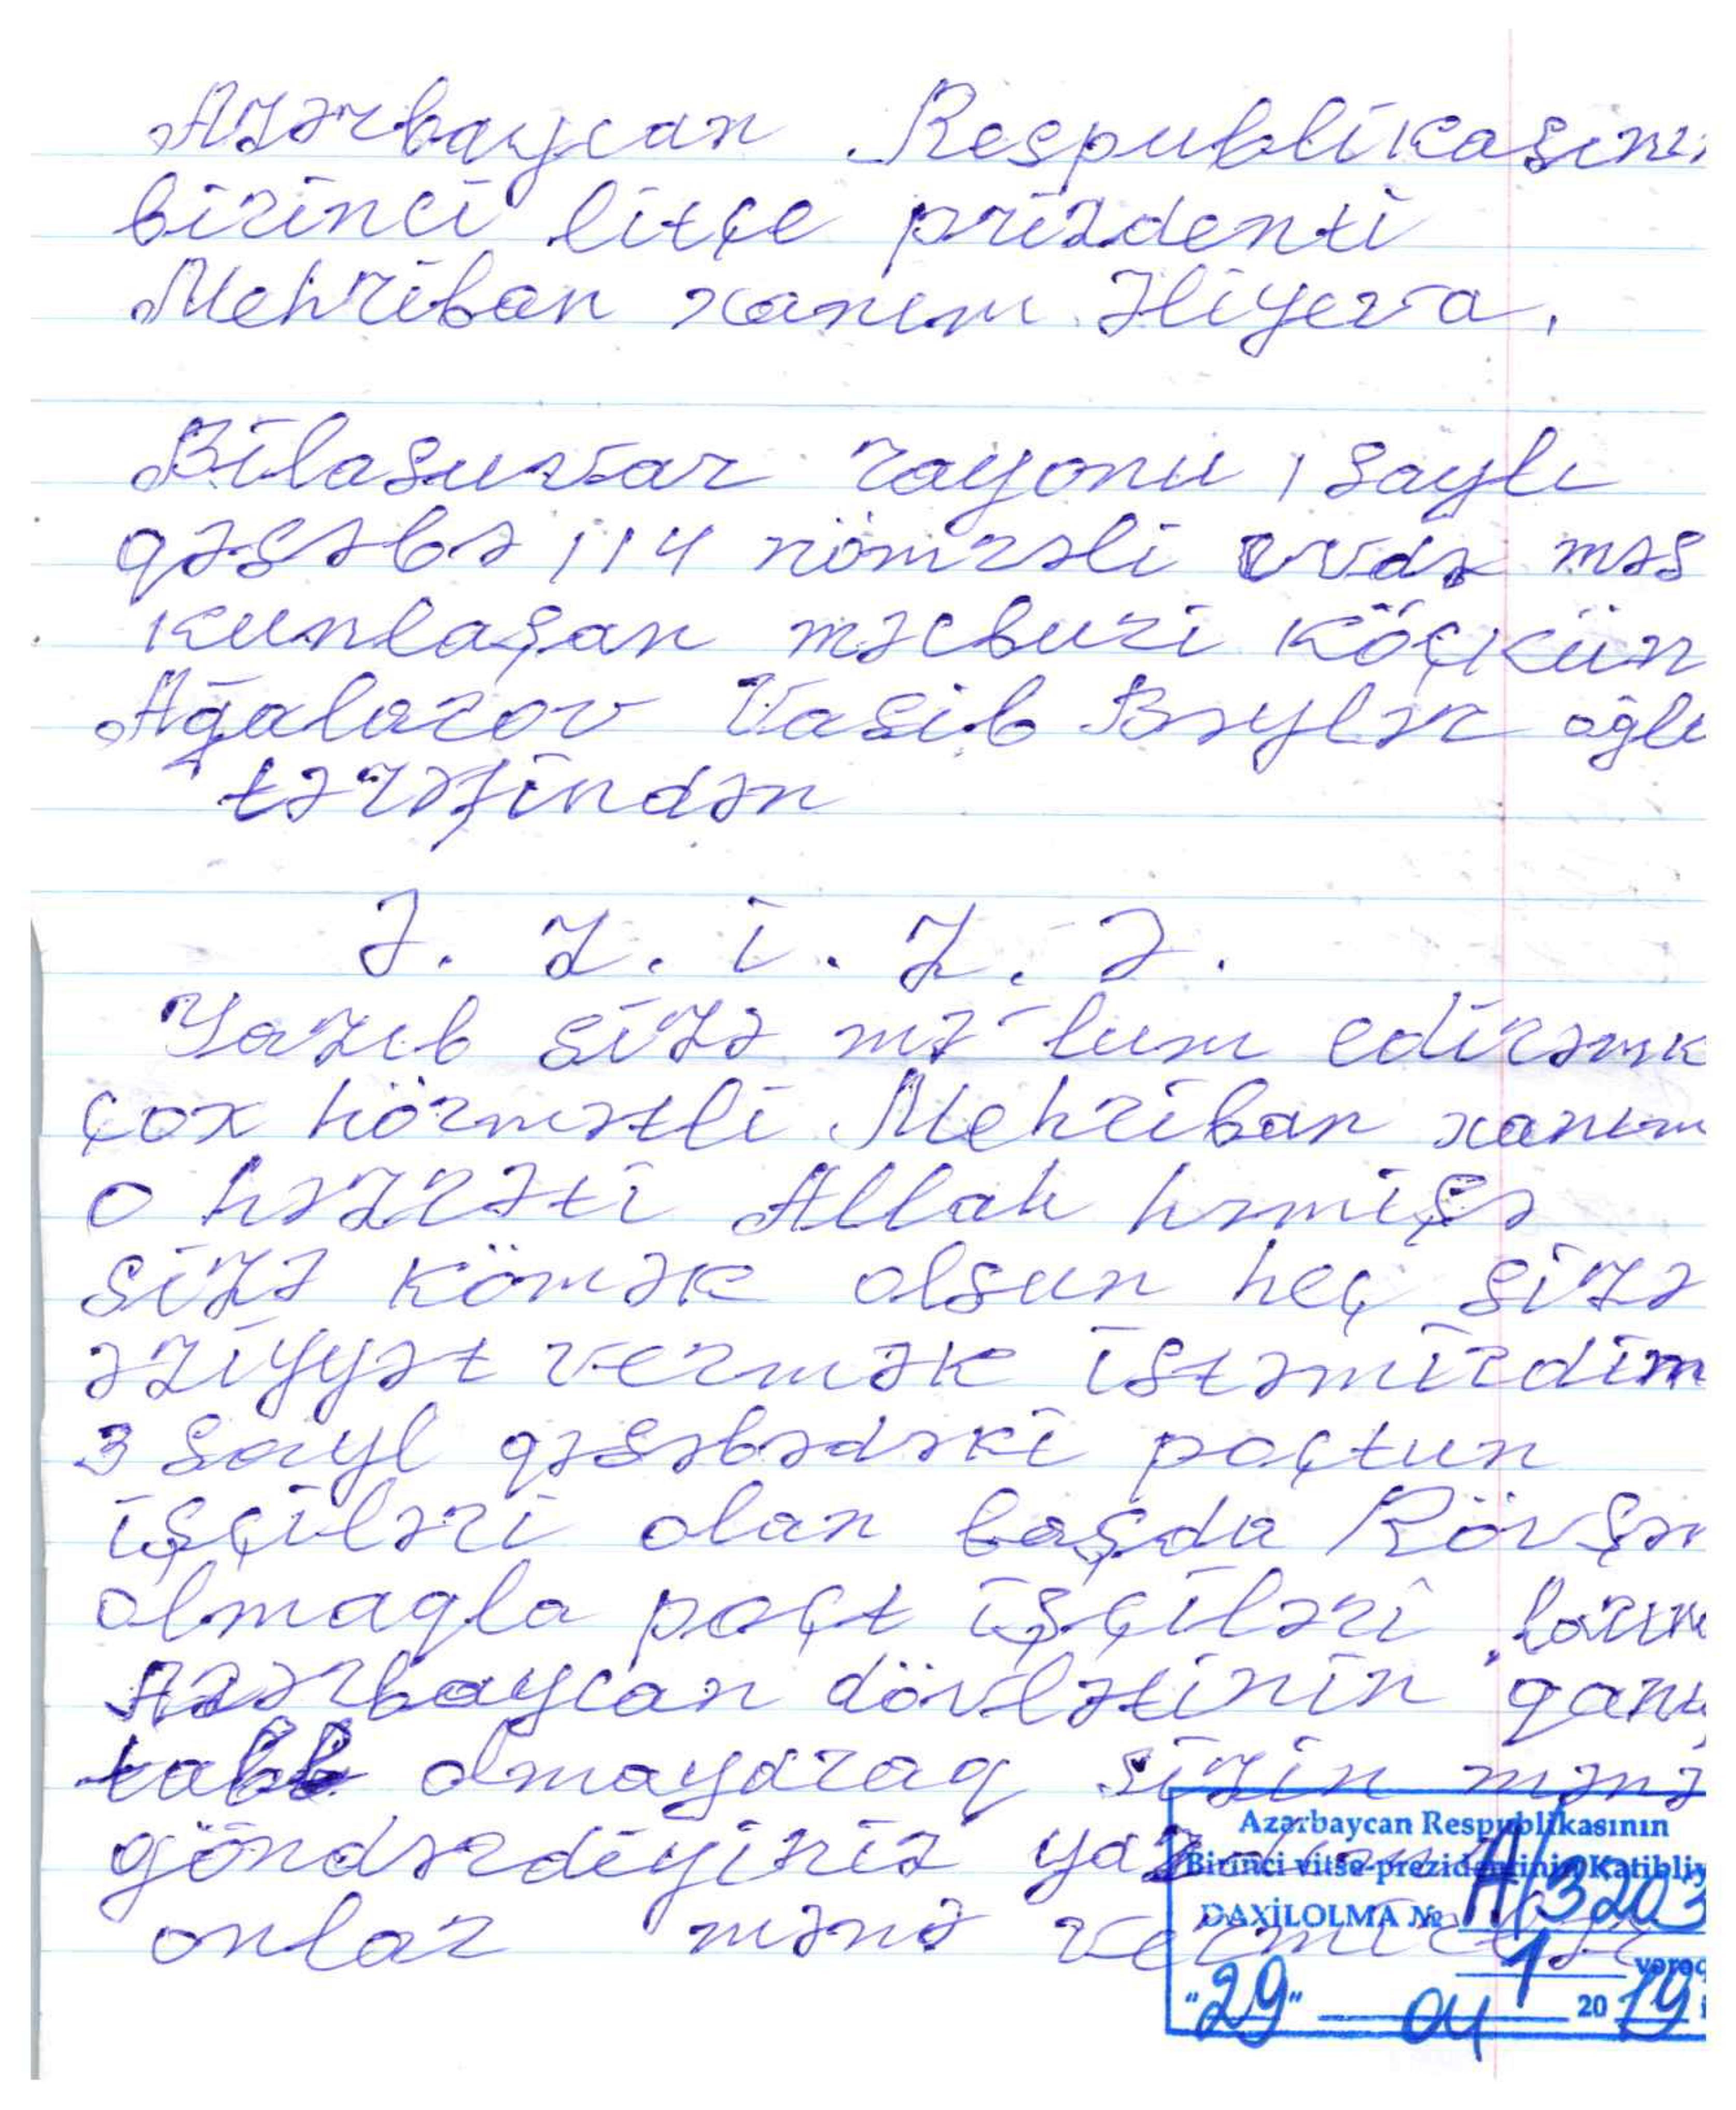 Azərbaycan Respublikasını
birinci litçe prizdenti
Mehriban xanım Əliyeva.
Bilasuvar rayonu 1 saylı
qəsəbə 114 nömrəli evdə məs
kunlaşan məcburi köçkün
Ağalarov Vasib Bəylər oğlu
tərəfindən
Ə. Z. i. Z. Ə.
Yazıb sizə mə'lum edirəmk
çox hörmətli Mehriban xanım
o həzrəti Allah həmişə
sizə kömək olsun heç sizə
əziyyət vermək istəmirdim
3 sayl qəsəbədəki poçtun
işçiləri olan başda Rövşən
olmaqla poçt işçiləri
Azərbaycan dövlətinin qanu
olmayaraq sizin mənə
göndərdiyiniz
onlar mənə
Azərbaycan Respublikasının
Birinci vitse-prezidentinin Katibliy
DAXİLOLMA № A/3203
1 vərəq
"29" 04 2019 i